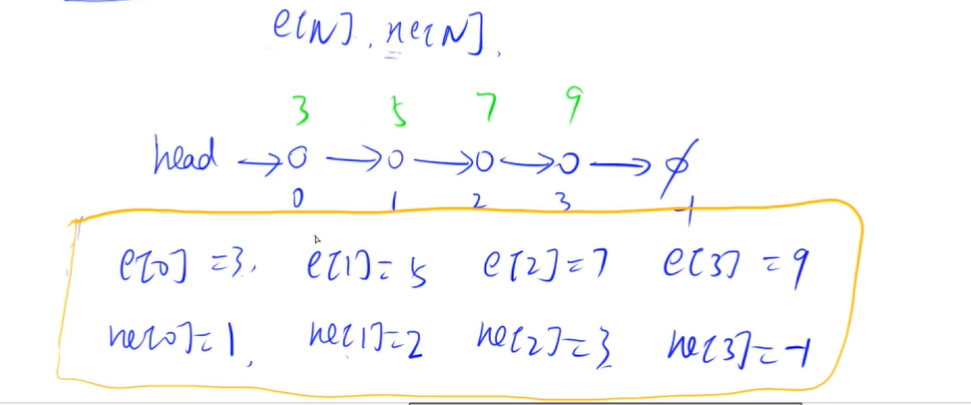 e[N], ne[N],
3 5 7 9
head → 0 → 0 → 0 → 0 → ∅
0 1 2 3 -1
e[0]=3, e[1]=5 e[2]=7 e[3]=9
ne[0]=1, ne[1]=2 ne[2]=3 ne[3]=-1